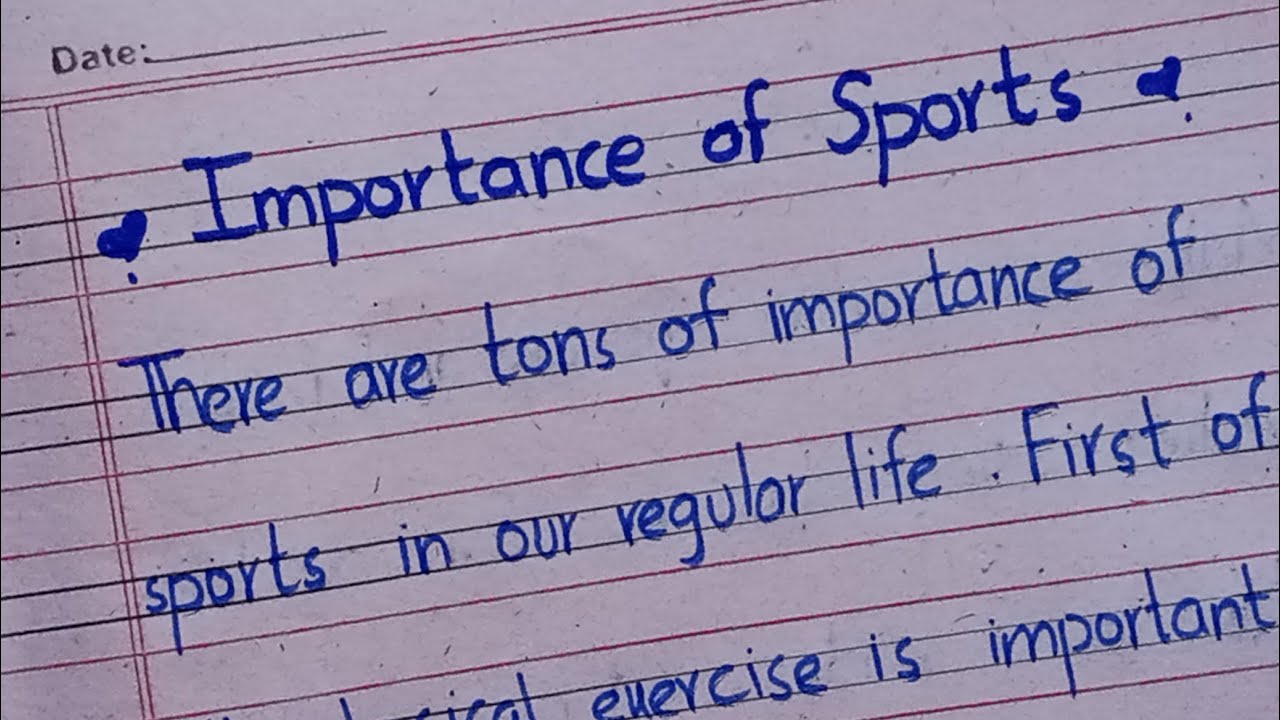 Date:
Importance of Sports
There are tons of importance of
sports in our regular life. First of
exercise is important